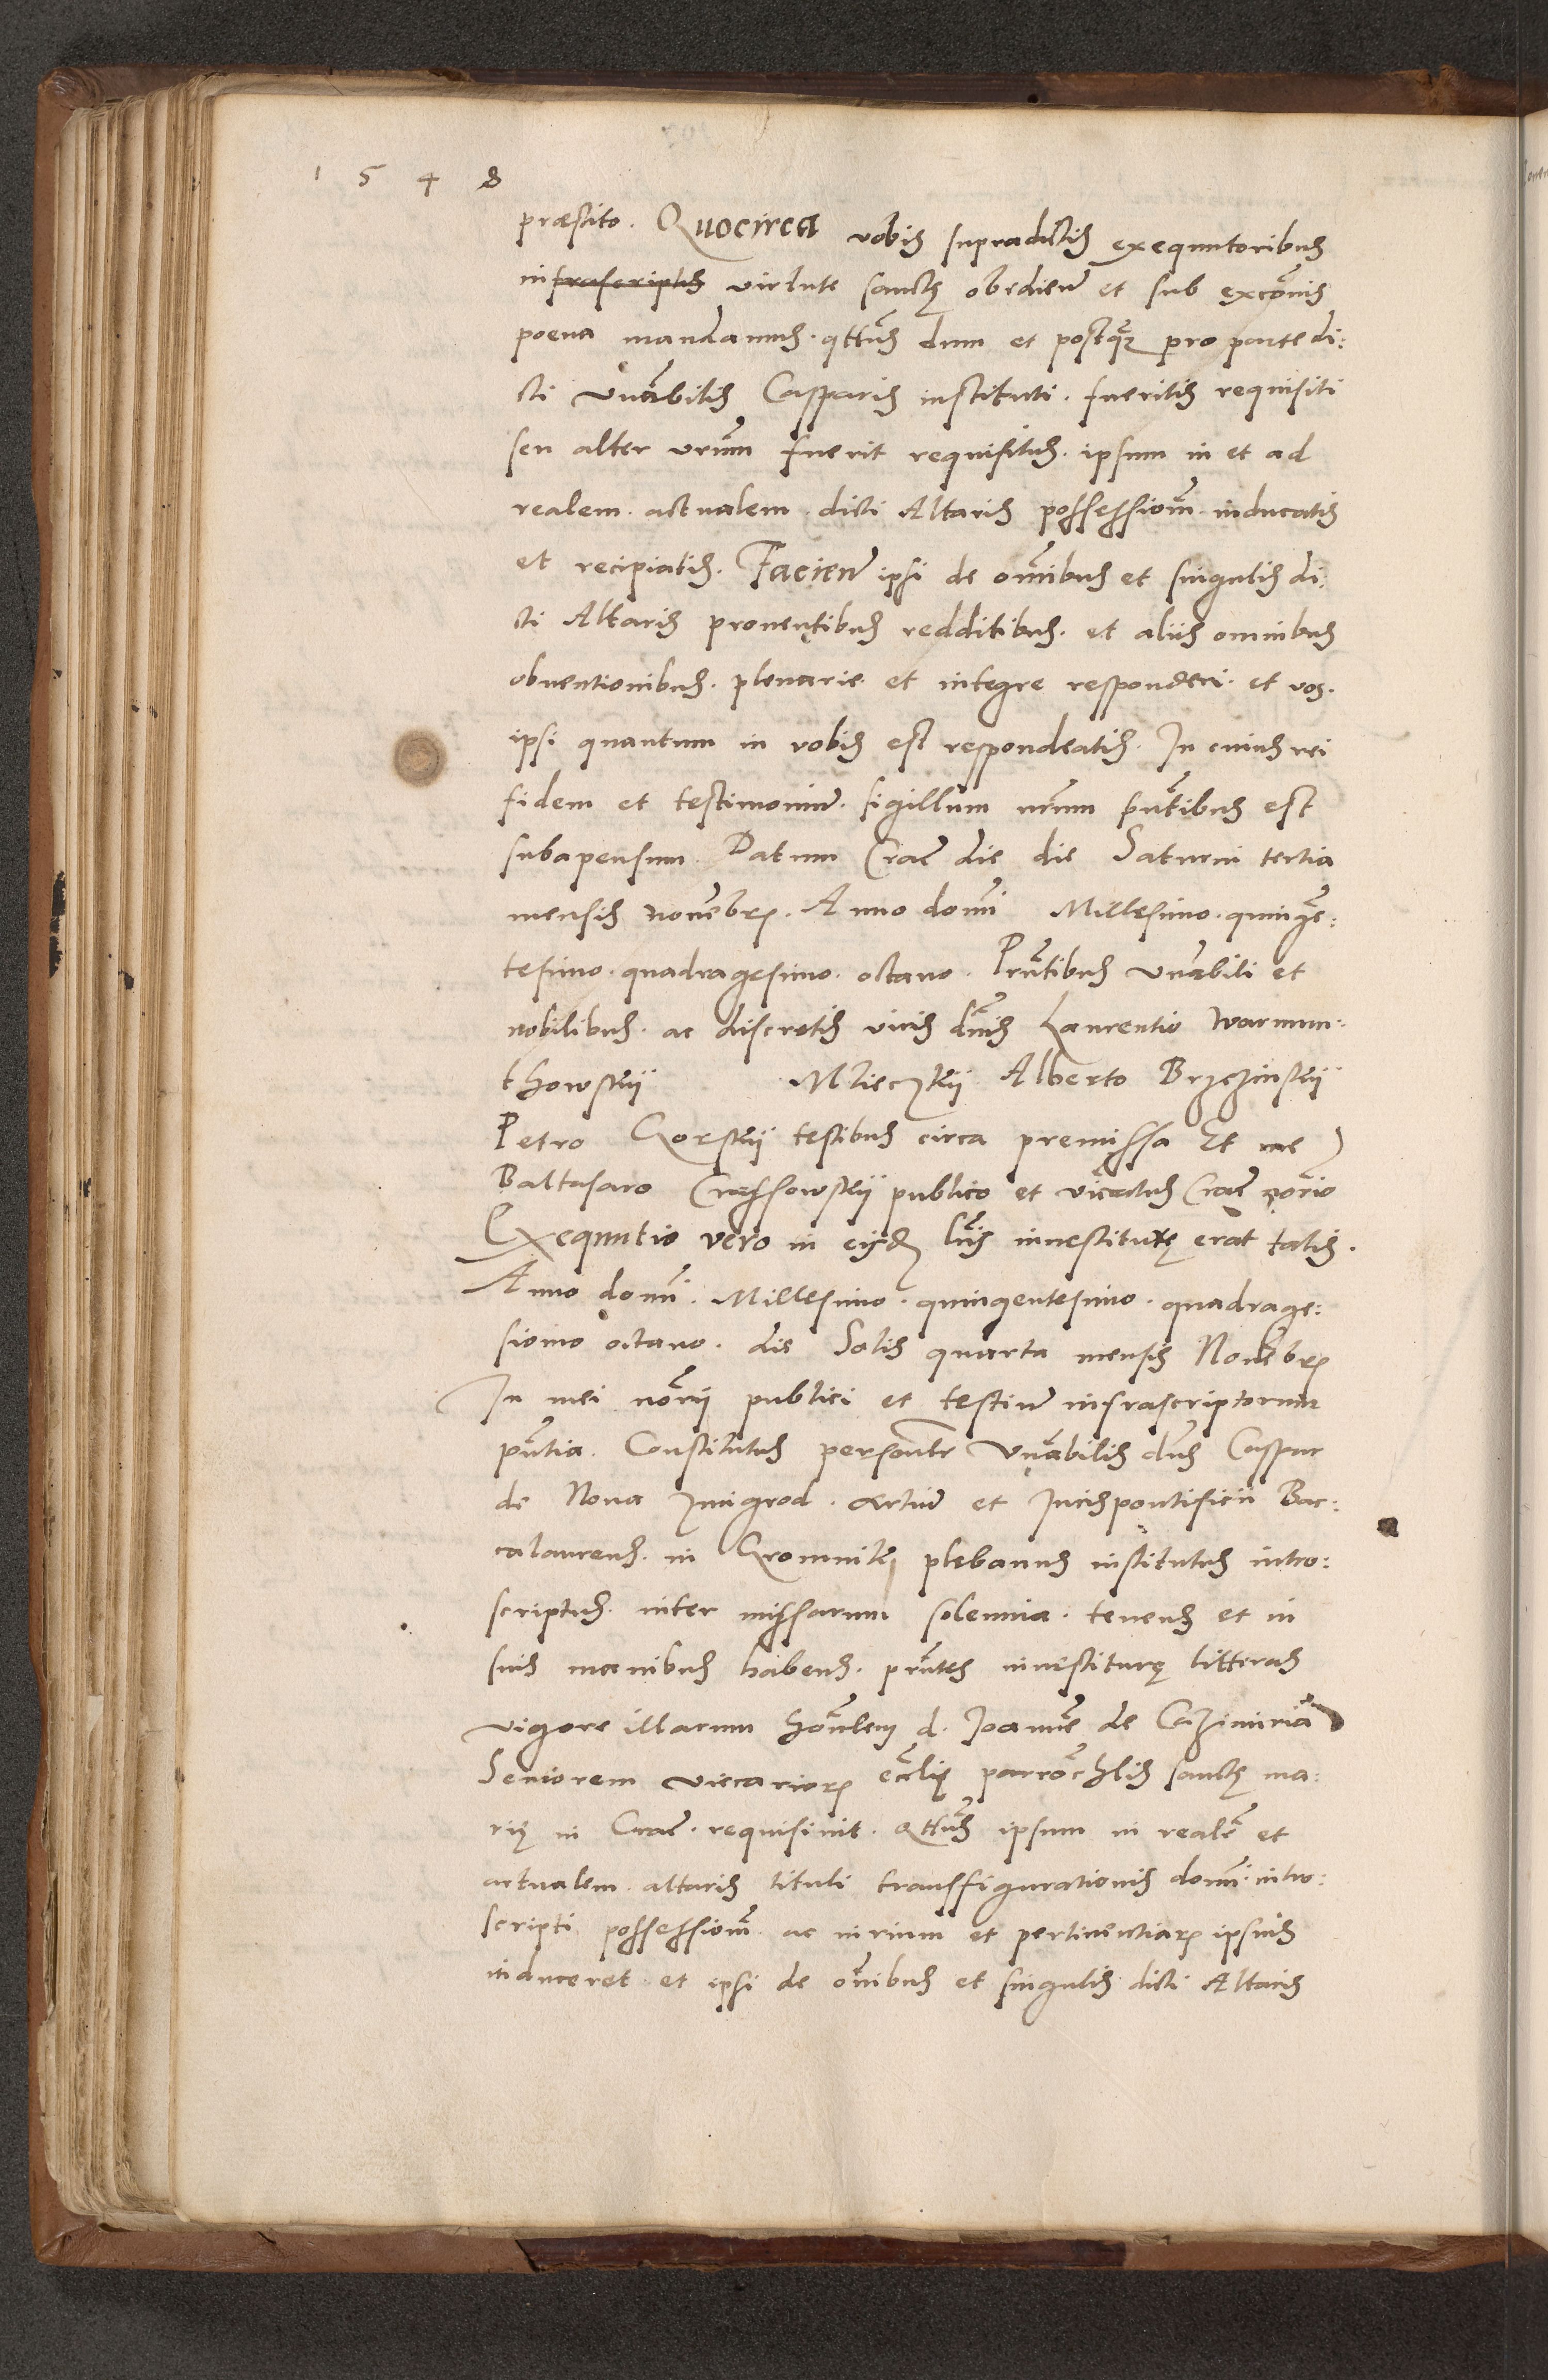 1 5 4 8
præstito. Quocirca vobis supradictis exequutoribus
infrascriptis virtute sanctę obedien et sub exco͠nis
poena mandamus. q͠ttus dum et postq͠z pro parte di:
cti Vn͠abilis Casparis instituti. fueritis requisiti
seu alter vr͠um fuerit requisitus. ipsum in et ad
realem. actualem. dicti Altaris possessio͠m inducatis
et recipiatis. Facien ipsi de om͠ibus et singulis di:
cti Altaris prouentibus redditibus. et aliis omnibus
obuentionibus. plenarie. et integre responderi. et vos.
ipsi quantum in vobis est respondeatis. In cuius rei
fidem et testimoniu͠. sigillum nr͠um pn͠tibus est
subapensum. Datum Crac͠ die die Saturni tertia
mensis nouem͠br. Anno dom͠i Millesimo. quinge͠:
tesimo. quadragesimo. octauo. Prn͠tibus Vn͠abili et
nobilibus. ac discretis viris dn͠is Laurentio Warmun:
thowskij Mlieczkij Alberto Brzezinskij
Petro Gorskij testibus circa premissa Et me
Baltasaro Crassowskij publico et vic͠atus Crac͠ nor͠io
Exequutio vero in eisd͠ lr͠is inuestiturę erat talis.
Anno dom͠i. Millesimo. quingentesimo. quadrage:
simo octauo. die Solis quarta mensis Noue͠br
In mei nor͠ii publici et testiu͠ infrascriptorum
pn͠tia. Constitutus person͠lr Vn͠abilis dn͠s Caspar
de Noua Zmigrod. artiu͠ et Jurispontificii Bac:
calaureus. in Gromnik plebanus institutus intro:
scriptus. inter missarum solemnia. tenens et in
suis manibus habens. prn͠tes inuestiturę litteras
vigore illarum hon͠lem d. Joanne͠ de Cazimiria
Seniorem viccarior eccl͠ię parroc͠hlis sanctę ma:
rię in Crac͠. requisiuit. q͠ttus ipsum in reale͠ et
actualem. altaris tituli transfigurationis dom͠i. intro:
scripti possessio͠m. ac iurium et pertinentiar ipsius
induceret. et ipsi de om͠ibus et singulis dicti Altaris